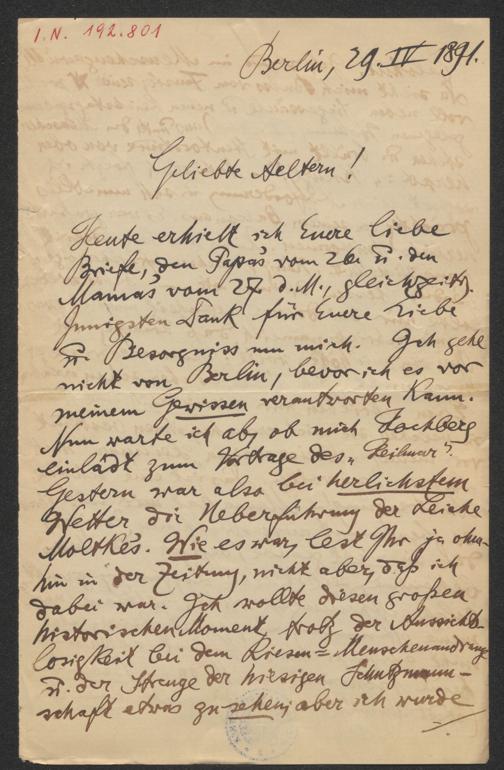 I.N. 192.801
Berlin, 29. IV 1891.
Geliebte Aeltern!
Heute erhielt ich Euere liebe
Briefe, den Papa's vom 26. u. den
Mama's vom 27. d. M., gleichzeitig.
Innigsten Dank für Euere Liebe
u. Besorgniss um mich. Ich gehe
nicht von Berlin, bevor ich es vor
meinem Gewissen verantworten kann.
Nun warte ich ab, ob mich Hochberg
einlädt zum Vortrage des „Heilmar".
Gestern war also bei herlichstem
Wetter die Ueberführung der Leiche
Moltke's. Wie es war, lest Ihr ja ohne-
hin in der Zeitung, nicht aber, daß ich
dabei war. Ich wollte diesen großen
historischen Moment, trotz der Aussichts-
losigkeit bei dem Riesen=Menschenandrang
u. der Strenge der hiesigen Schutzmann-
schaft etwas zu sehen; aber ich wurde